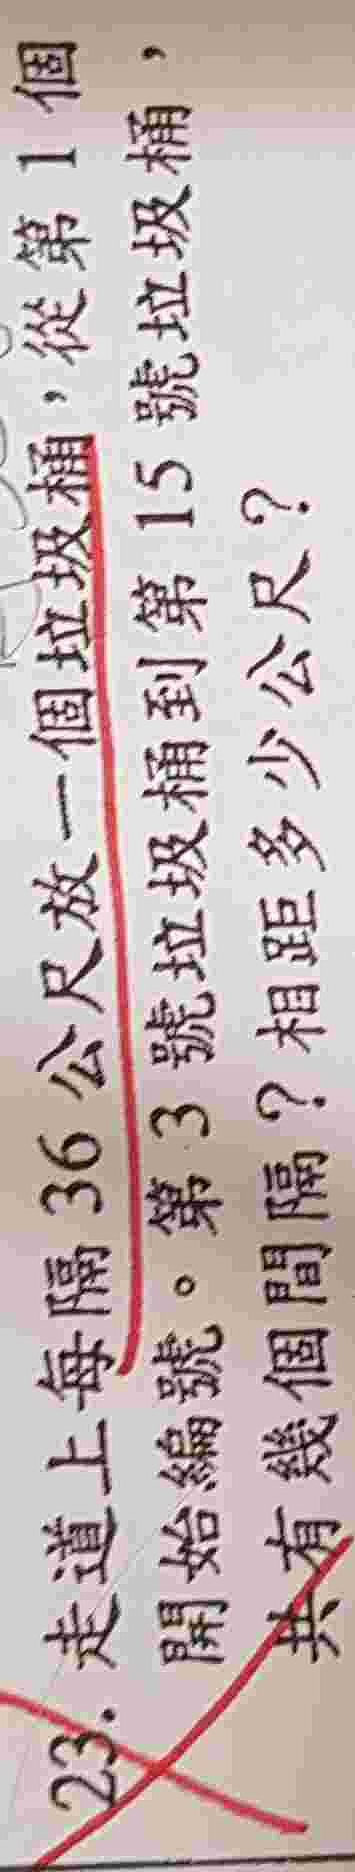 23. 走道上每隔 36 公尺放一個垃圾桶，從第 1 個
開始編號。第 3 號垃圾桶到第 15 號垃圾桶，
共有幾個間隔？相距多少公尺？